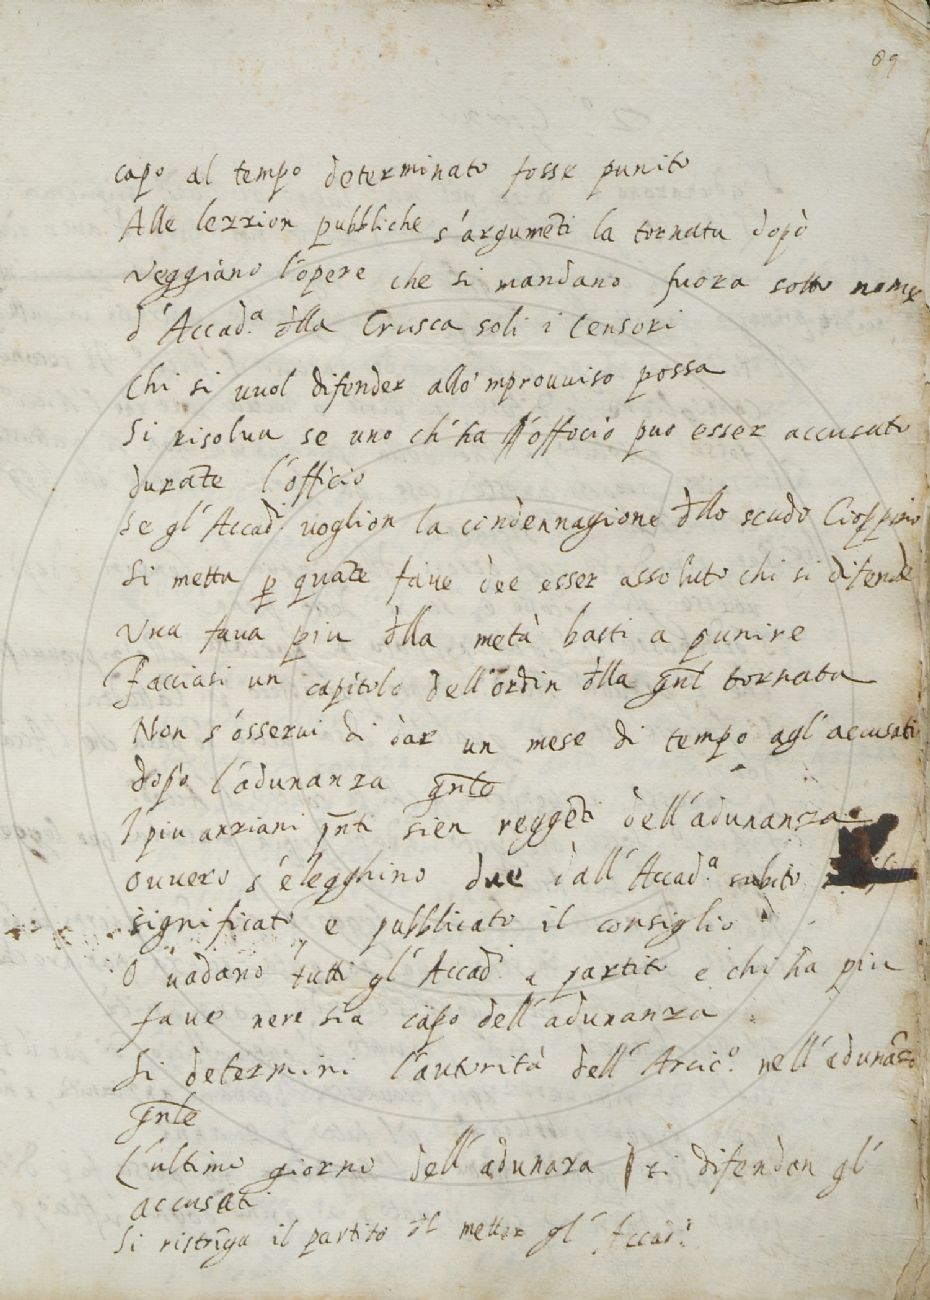 89
capo al tempo determinato fosse punito
Alle lezzion pubbliche s'argumēti la tornata dopò
Veggiano l'opere che si mandano fuora sotto nome
d'Accad.a d̄lla Crusca soli i Censori
Chi si vuol difender allo'mprovviso possa
Si risolva se uno ch'ha l'officio puo esser accusato
durāte l'officio
Se gl'Accad.i voglion la condennagione d̄llo scudo
Si metta p quāte fave dee esser assoluto chi si difende
Una fava piu d̄lla metà basti a punire
Facciasi un capitolo dell'ordin d̄lla gn̄l tornata
Non s'osservi di dar un mese di tempo agl'accusati
dopo l'adunanza gn̄le
I piu anziani pn̄ti sien reggēti dell'adunanza
ovvero s'elegghino due dall'Accad.a subito
significato e pubblicato il consiglio
O vadano tutti gl'Accad.i a partito e chi ha piu
fave nere sia capo dell'adunanza
Si determini l'autorità dell'Arcic.o nell'adunāza
gn̄le
L'ultimo giorno dell'adunāza si difendan gl'
accusati
Si ristringa il partito il metter gl'Accad.i